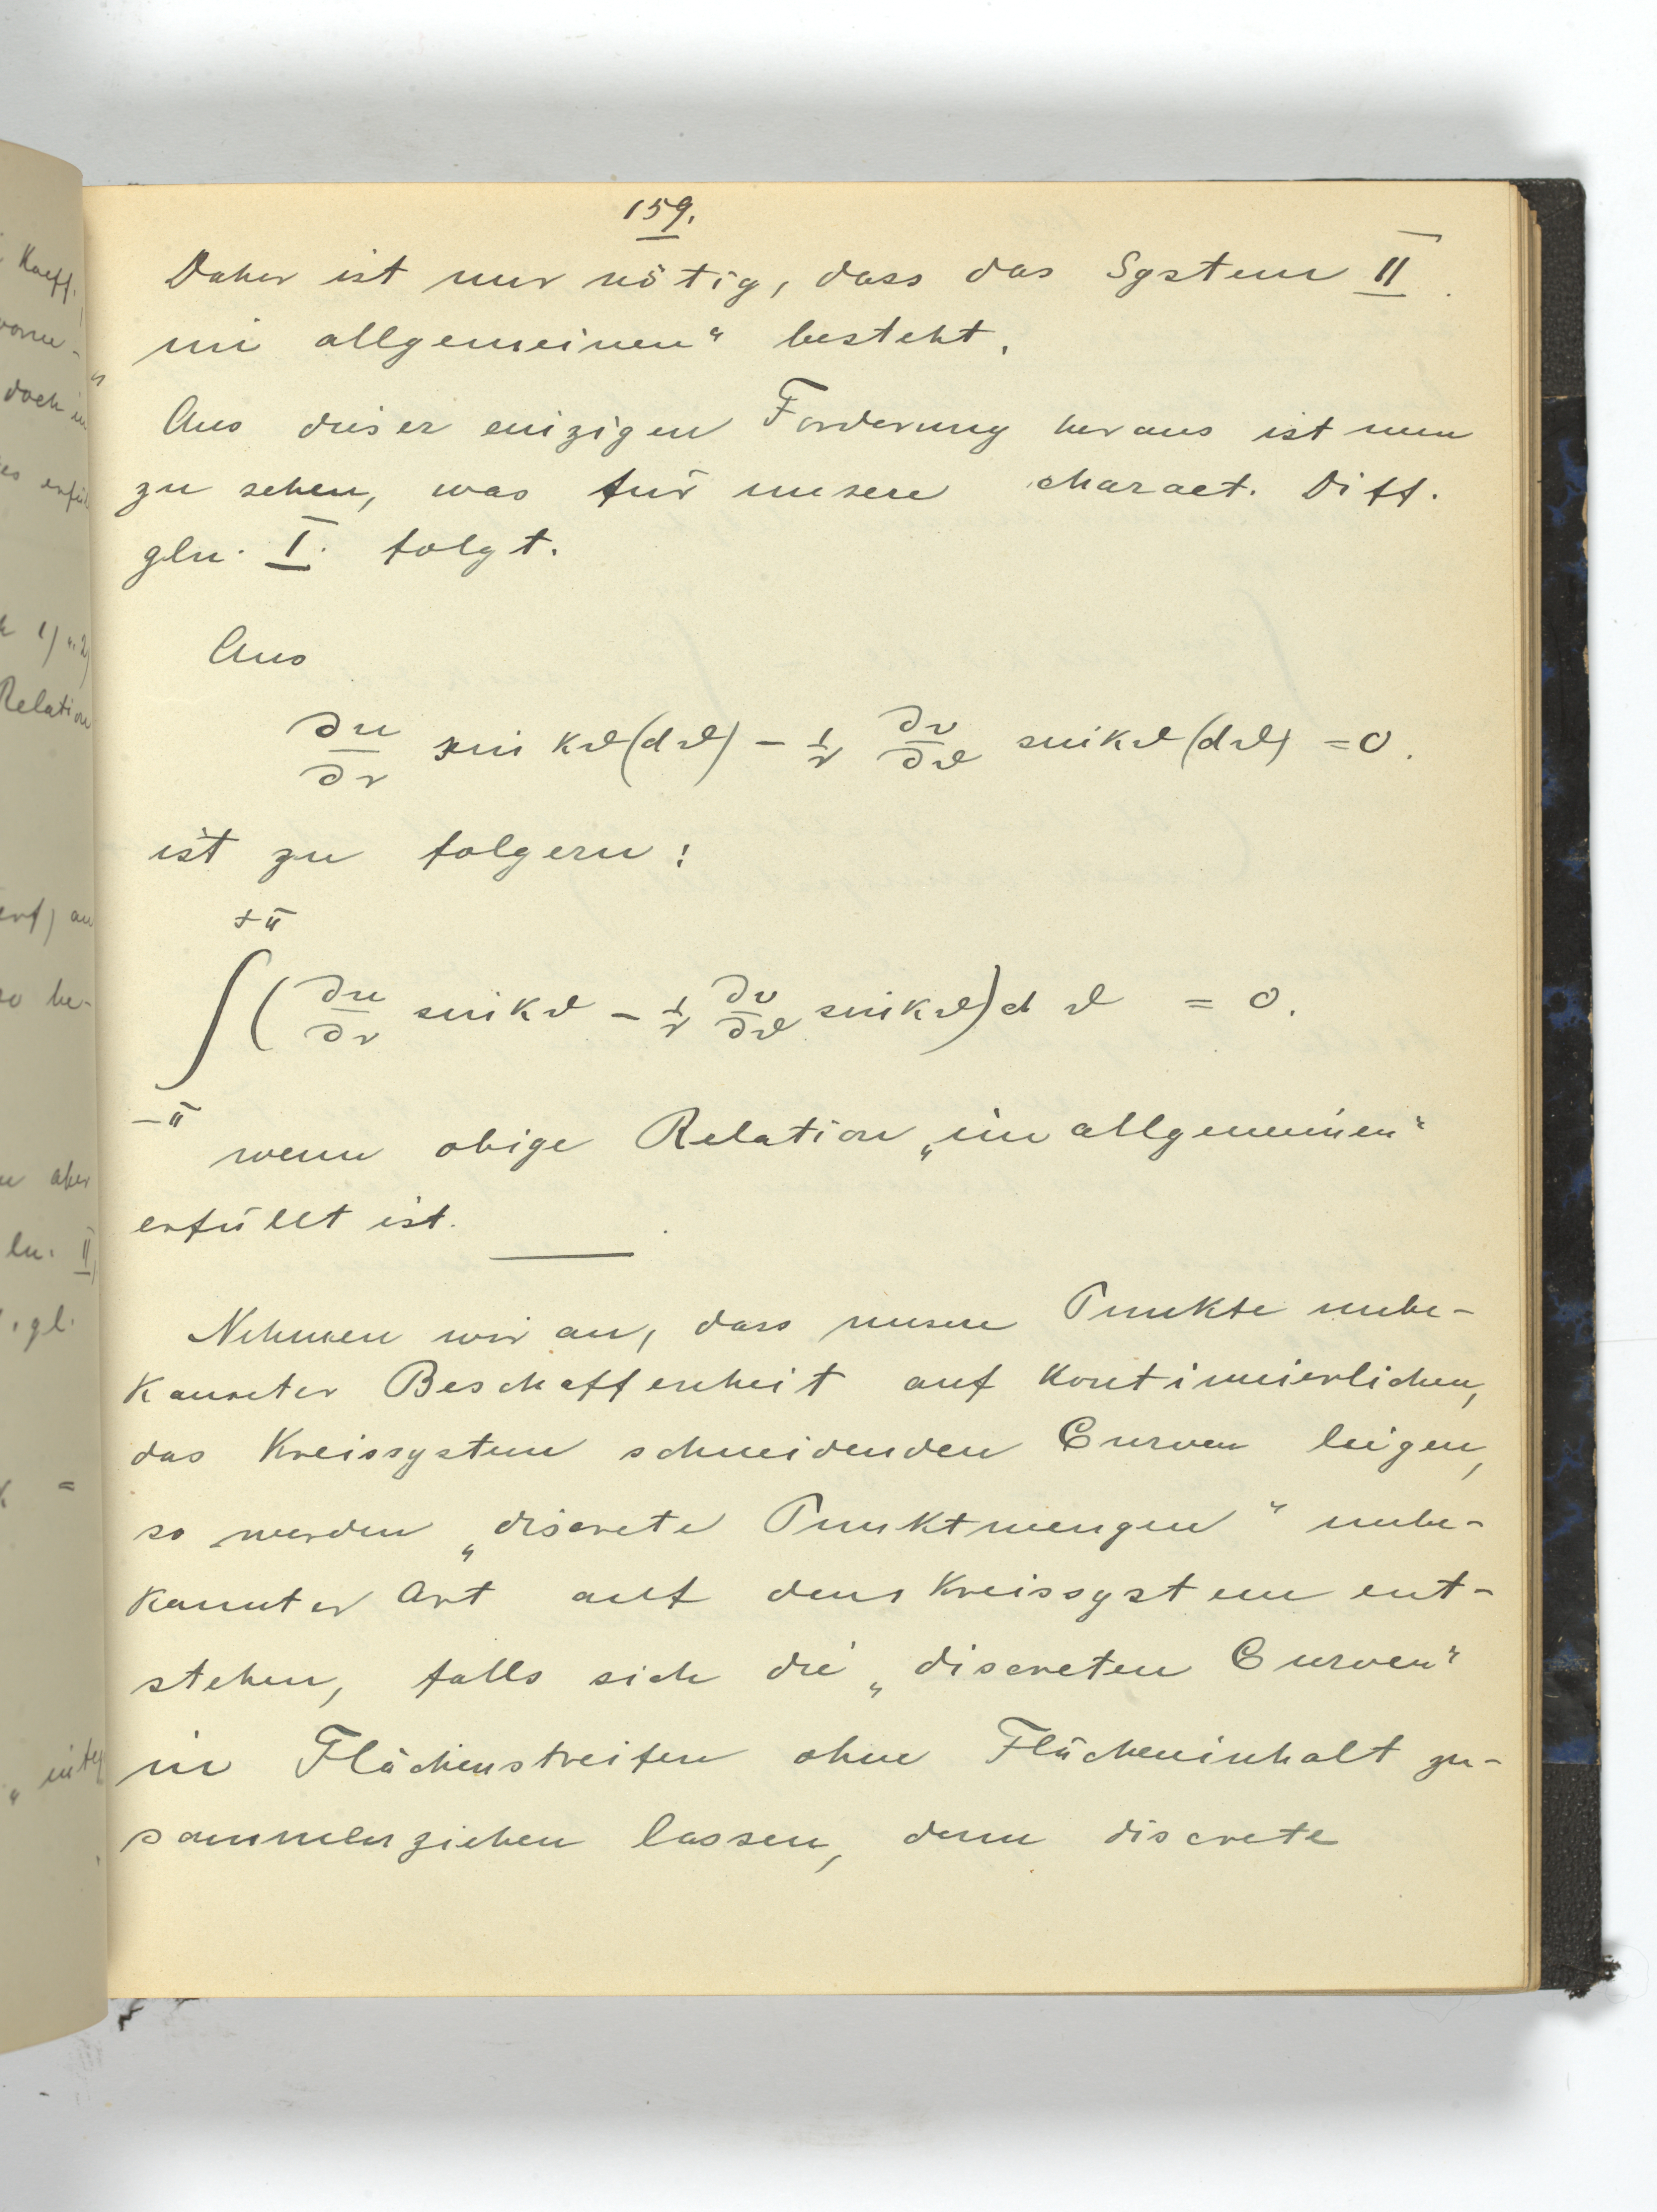 159.
Daher ist nur nötig, dass das System II
„im allgemeinen“ besteht.
Aus dieser einzigen Forderung heraus ist nun
zu sehen, was für unsere charact. Diff.
gln. I. folgt.
Aus
∂u/∂r sin kϑ(dϑ) − 1/r ∂v/∂ϑ sin kϑ(dϑ) = 0.
ist zu folgern:
+π
∫ (∂u/∂r sin kϑ − 1/r ∂v/∂ϑ sin kϑ) dϑ = 0.
−π
wenn obige Relation „im allgemeinen“
erfüllt ist.
Nehmen wir an, dass unsere Punkte unbe-
kannter Beschaffenheit auf kontinuierlichen,
das Kreissystem schneidenden Curven liegen,
so werden „discrete Punktmengen“ unbe-
kannter Art auf dem Kreissystem ent-
stehen, falls sich die „discreten Curven“
in Flächenstreifen ohne Flächeninhalt zu-
sammenziehen lassen, denn discrete